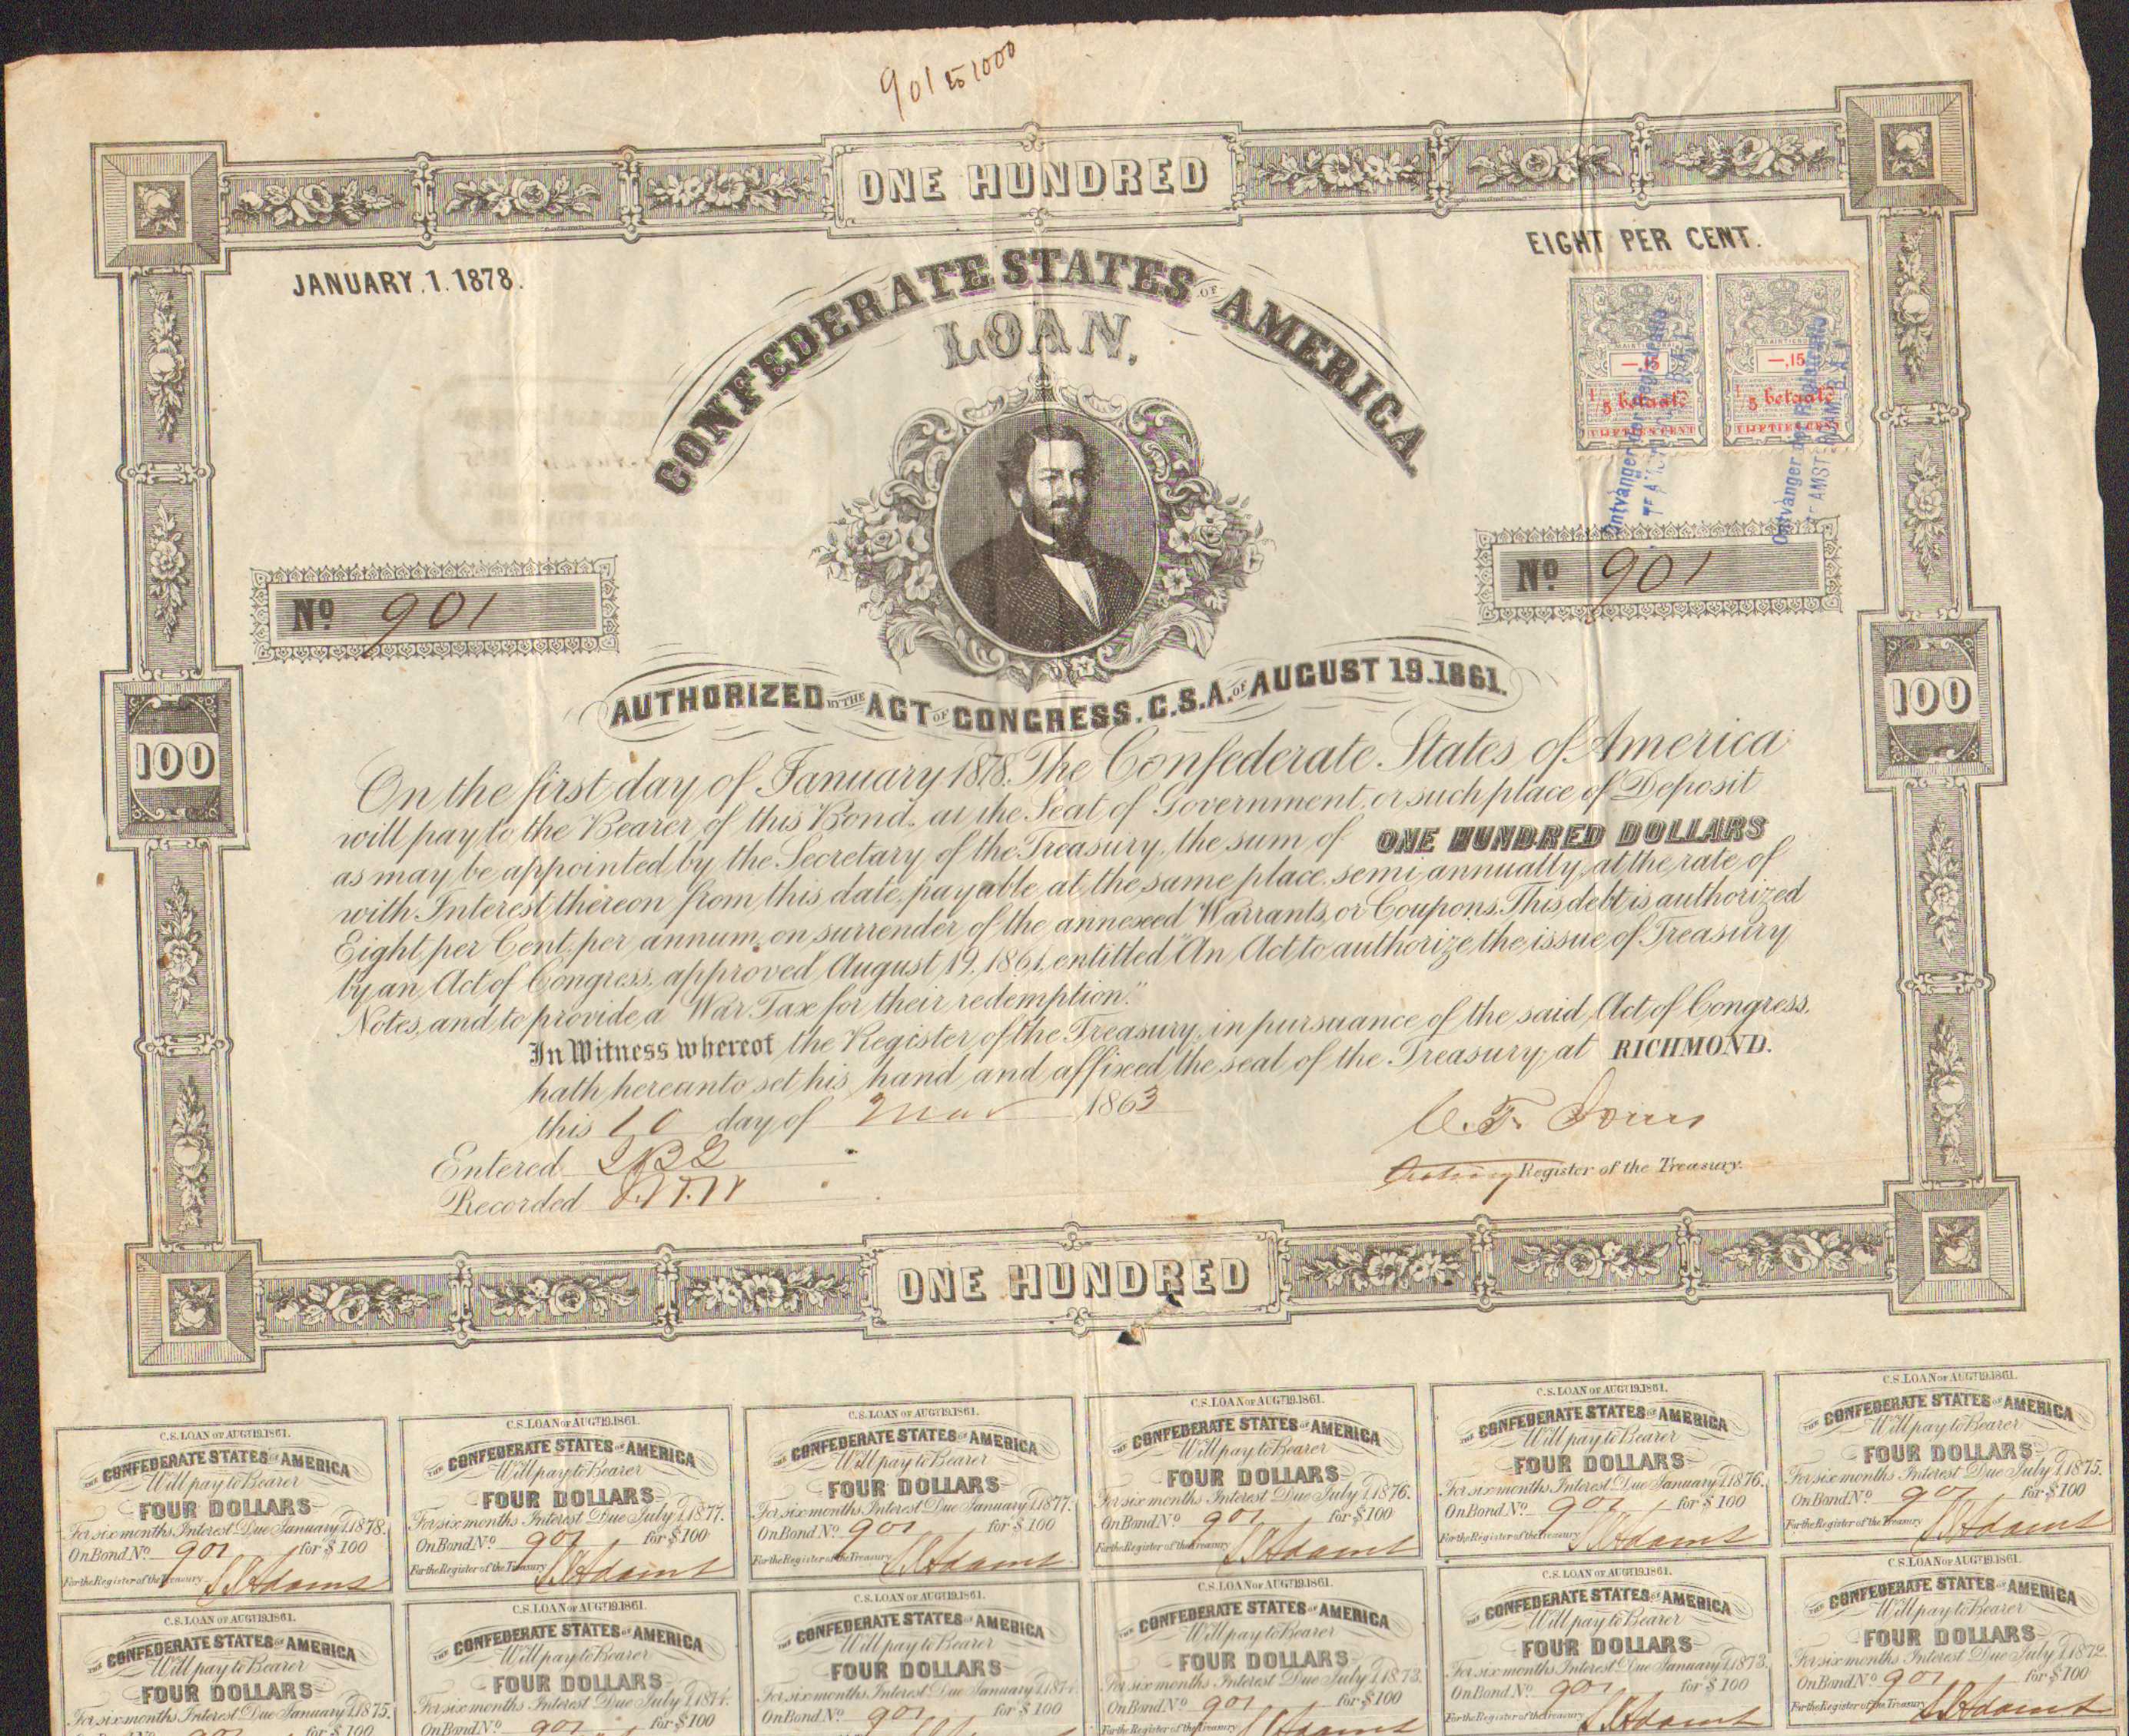 901 to 1000
ONE HUNDRED
JANUARY, 1. 1878.
EIGHT PER CENT.
CONFEDERATE STATES OF AMERICA
LOAN,
—.15
1/5 betaald
VIJFTIEN CENT
—.15
1/5 betaald
VIJFTIEN CENT
Ontvanger der Registratie
TE AMSTERDAM
Ontvanger der Registratie
TE AMSTERDAM
No 901
No 901
AUTHORIZED BY THE ACT OF CONGRESS. C.S.A. OF AUGUST 19. 1861.
100
100
On the first day of January 1878. The Confederate States of America
will pay to the Bearer of this Bond, at the Seat of Government, or such place of Deposit
as may be appointed by the Secretary of the Treasury, the sum of ONE HUNDRED DOLLARS
with Interest thereon from this date, payable at the same place, semi annually, at the rate of
Eight per Cent. per annum, on surrender of the annexed Warrants, or Coupons. This debt is authorized
by an Act of Congress, approved August 19, 1861, entitled "An Act to authorize the issue of Treasury
Notes, and to provide a War Tax for their redemption."
In Witness whereof the Register of the Treasury, in pursuance of the said Act of Congress,
hath hereunto set his hand and affixed the seal of the Treasury, at RICHMOND.
this 10 day of Mar 1863
Entered
Recorded
Acting Register of the Treasury.
ONE HUNDRED
C.S. LOAN OF AUGT 19. 1861.
THE CONFEDERATE STATES OF AMERICA
Will pay to Bearer
FOUR DOLLARS
For six months Interest Due January 1. 1878.
On Bond No 901 for $100
For the Register of the Treasury
C.S. LOAN OF AUGT 19. 1861.
THE CONFEDERATE STATES OF AMERICA
Will pay to Bearer
FOUR DOLLARS
For six months Interest Due July 1. 1877.
On Bond No 901 for $100
For the Register of the Treasury
C.S. LOAN OF AUGT 19. 1861.
THE CONFEDERATE STATES OF AMERICA
Will pay to Bearer
FOUR DOLLARS
For six months Interest Due January 1. 1877.
On Bond No 901 for $100
For the Register of the Treasury
C.S. LOAN OF AUGT 19. 1861.
THE CONFEDERATE STATES OF AMERICA
Will pay to Bearer
FOUR DOLLARS
For six months Interest Due July 1. 1876.
On Bond No 901 for $100
For the Register of the Treasury
C.S. LOAN OF AUGT 19. 1861.
THE CONFEDERATE STATES OF AMERICA
Will pay to Bearer
FOUR DOLLARS
For six months Interest Due January 1. 1876.
On Bond No 901 for $100
For the Register of the Treasury
C.S. LOAN OF AUGT 19. 1861.
THE CONFEDERATE STATES OF AMERICA
Will pay to Bearer
FOUR DOLLARS
For six months Interest Due July 1. 1875.
On Bond No 901 for $100
For the Register of the Treasury
C.S. LOAN OF AUGT 19. 1861.
THE CONFEDERATE STATES OF AMERICA
Will pay to Bearer
FOUR DOLLARS
For six months Interest Due January 1. 1875.
901 for $100
C.S. LOAN OF AUGT 19. 1861.
THE CONFEDERATE STATES OF AMERICA
Will pay to Bearer
FOUR DOLLARS
For six months Interest Due July 1. 1874.
On Bond No 901 for $100
C.S. LOAN OF AUGT 19. 1861.
THE CONFEDERATE STATES OF AMERICA
Will pay to Bearer
FOUR DOLLARS
For six months Interest Due January 1. 1874.
On Bond No 901 for $100
C.S. LOAN OF AUGT 19. 1861.
THE CONFEDERATE STATES OF AMERICA
Will pay to Bearer
FOUR DOLLARS
For six months Interest Due July 1. 1873.
On Bond No 901 for $100
For the Register of the Treasury
C.S. LOAN OF AUGT 19. 1861.
THE CONFEDERATE STATES OF AMERICA
Will pay to Bearer
FOUR DOLLARS
For six months Interest Due January 1. 1873.
On Bond No 901 for $100
For the Register of the Treasury
C.S. LOAN OF AUGT 19. 1861.
THE CONFEDERATE STATES OF AMERICA
Will pay to Bearer
FOUR DOLLARS
For six months Interest Due July 1. 1872.
On Bond No 901 for $100
For the Register of the Treasury